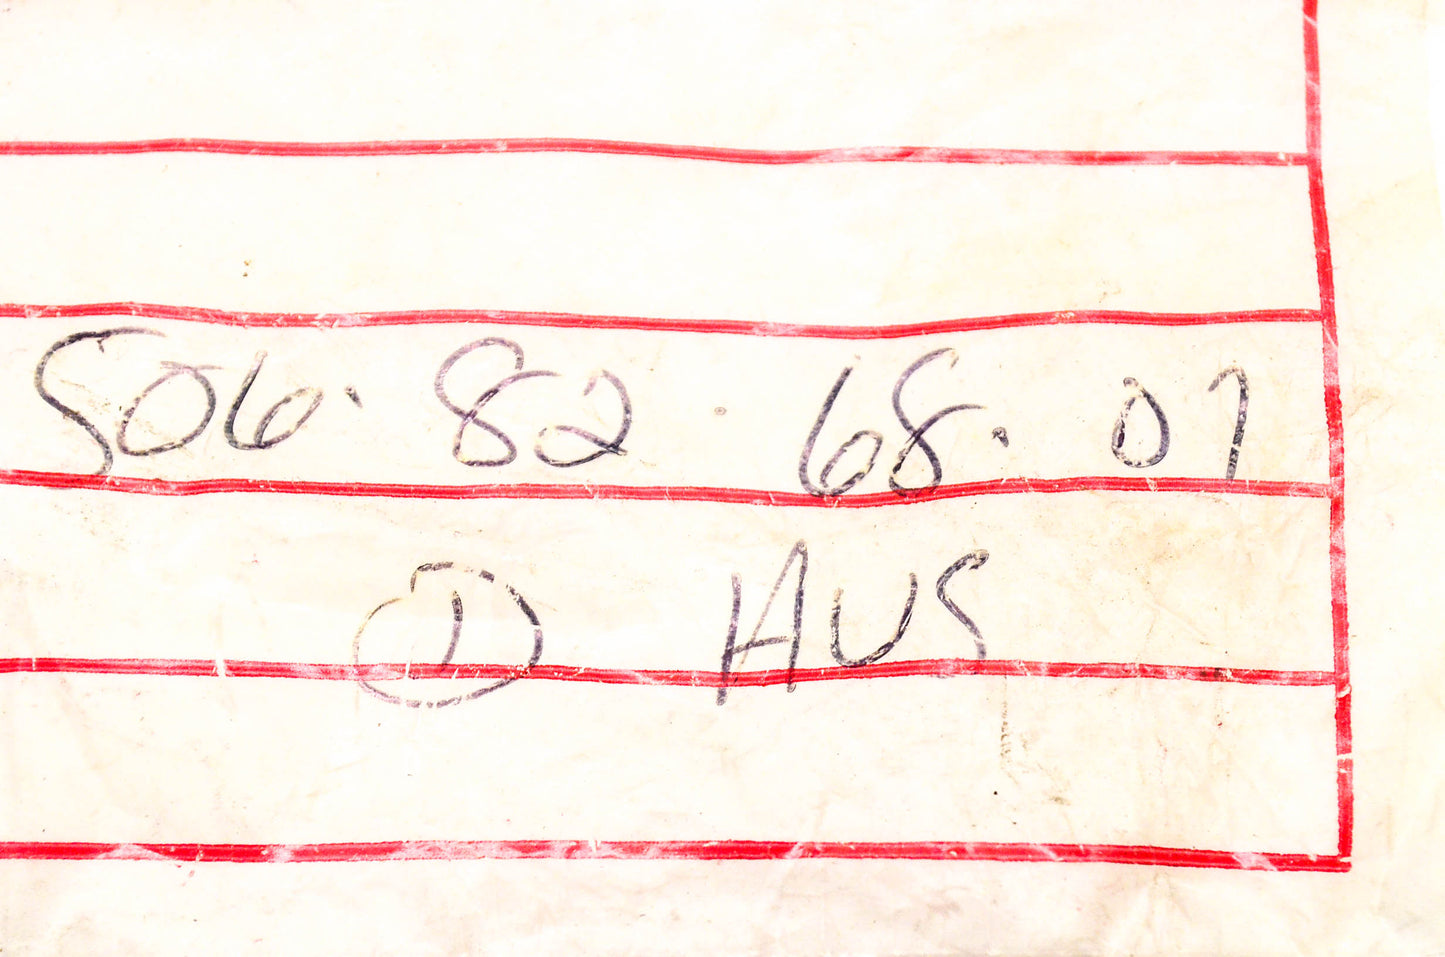 506. 82. 68. 07
① AUS